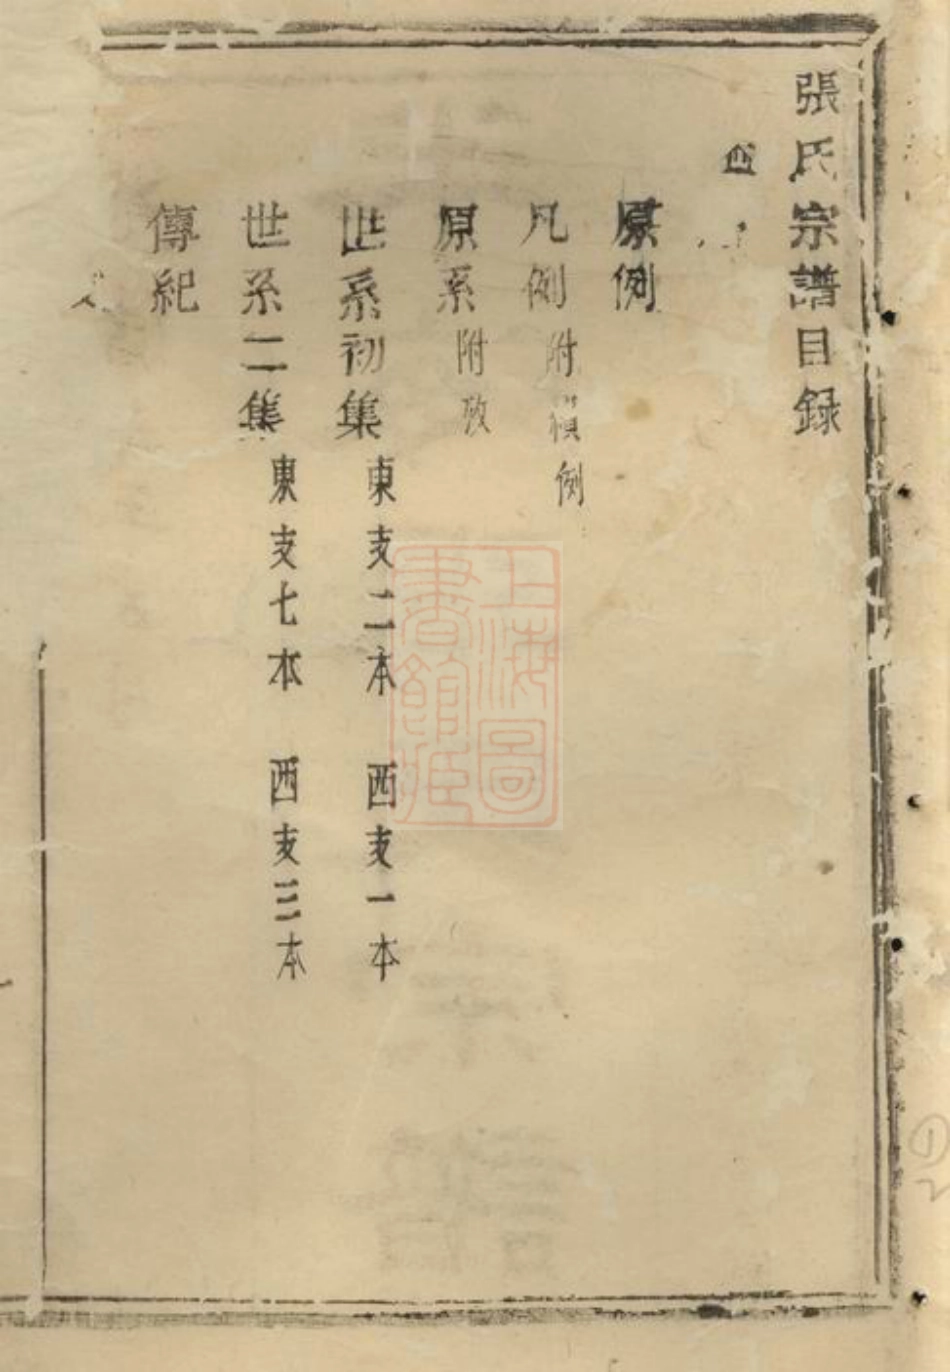 張氏宗譜目録
原例
凡例 附續例
原系 附攷
世系初集 東支二本 西支一本
世系二集 東支七本 西支三本
傳紀
上海圖書館藏